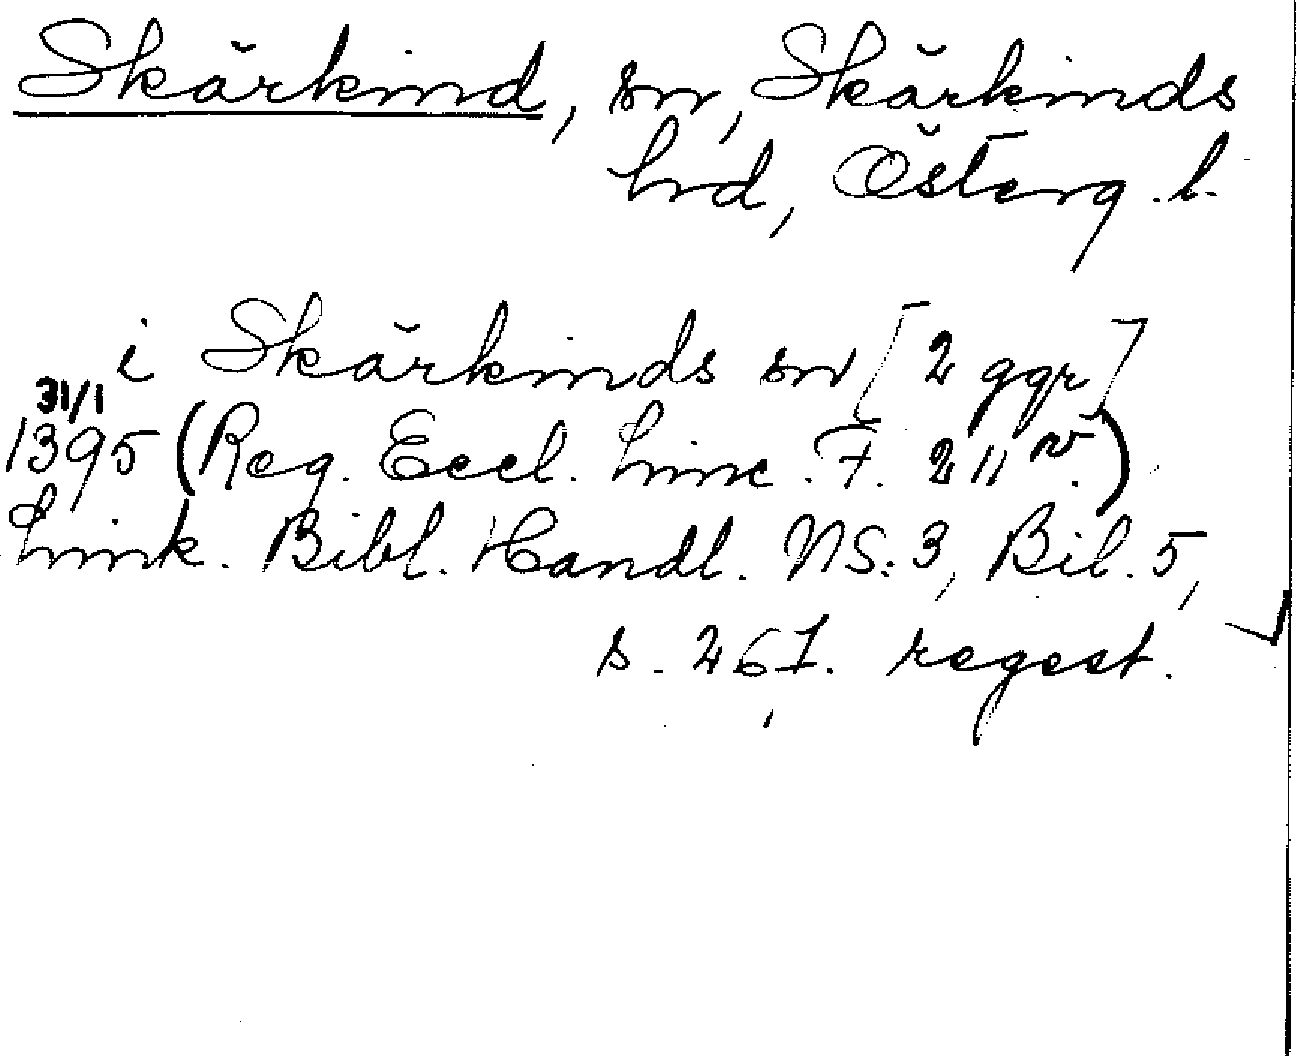 Skärkind, sn, Skärkinds
hrd, Österg. l.
i Skärkinds sn [2 ggr]
31/1
1395 (Reg. Eccl. Linc. F. 211 v.)
Link. Bibl. Handl. NS: 3, Bil. 5,
s. 267. regest.